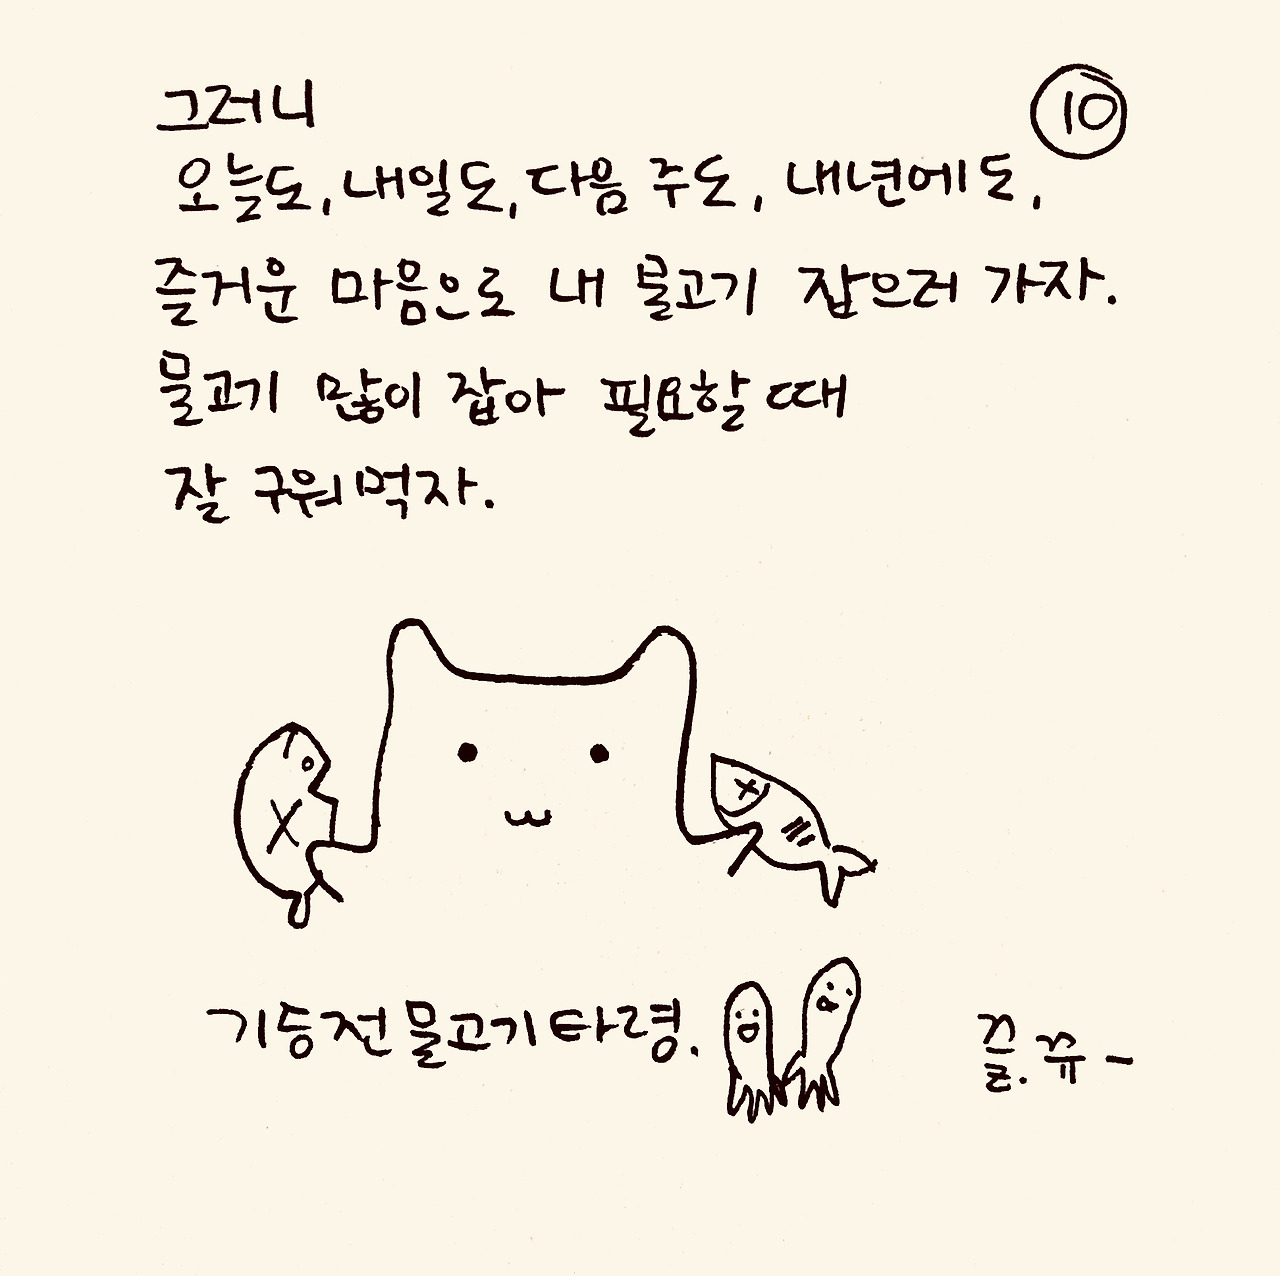 그러니
⑩
오늘도, 내일도, 다음 주도, 내년에도,
즐거운 마음으로 내 물고기 잡으러 가자.
물고기 많이 잡아 필요할 때
잘 구워먹자.
기승전물고기타령.
끌.뀨-